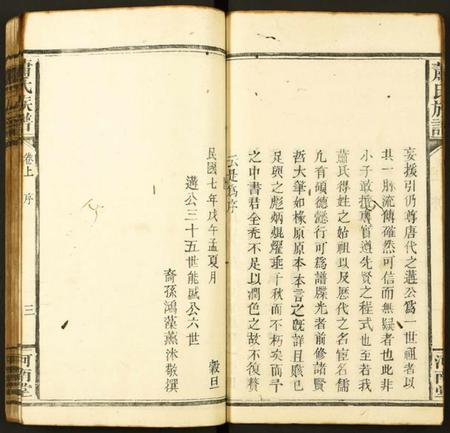 蕭氏族譜
河南堂
妄援引仍尊唐代之遘公爲一世祖者以
其一脉流傳確然可信而無疑者也此非
小子敢援廣官道先賢之程式也至若我
蕭氏得姓之始祖以及歷代之名宦名儒
凢有碩德懿行可爲譜牒光者前修諸賢
哲大筆如椽原原本本言之旣詳且贍已
足與之彪炳焜燿垂千秋而不朽矣而予
之中書君全秃不足以潤色之故不復贅
云是爲序
民國七年戊午孟夏月 穀旦
遘公三十五世能瑊公六世
裔孫鴻藻薰沐敬撰
蕭氏族譜
卷上 序
三
河南堂